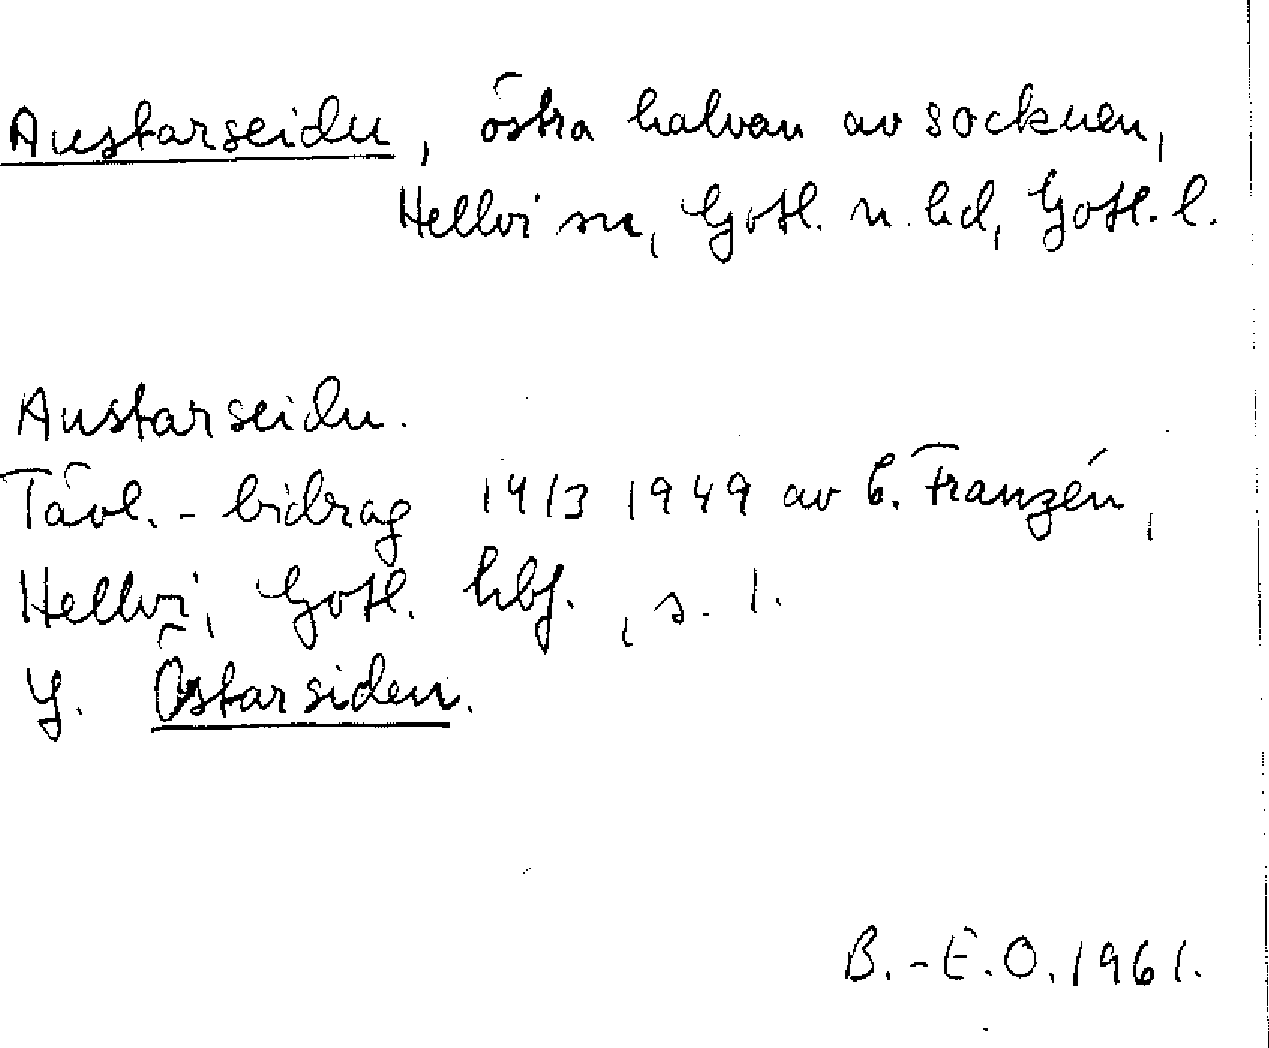 Austarseidu, östra halvan av socknen,
Hellvi sn, Gotl. n. hd, Gotl. l.
Austarseidu.
Tävl.-bidrag 14/3 1949 av C. Franzén,
Hellvi, Gotl. hbf., s. 1.
Jf. Östarsiden.
B.-E.O. 1961.